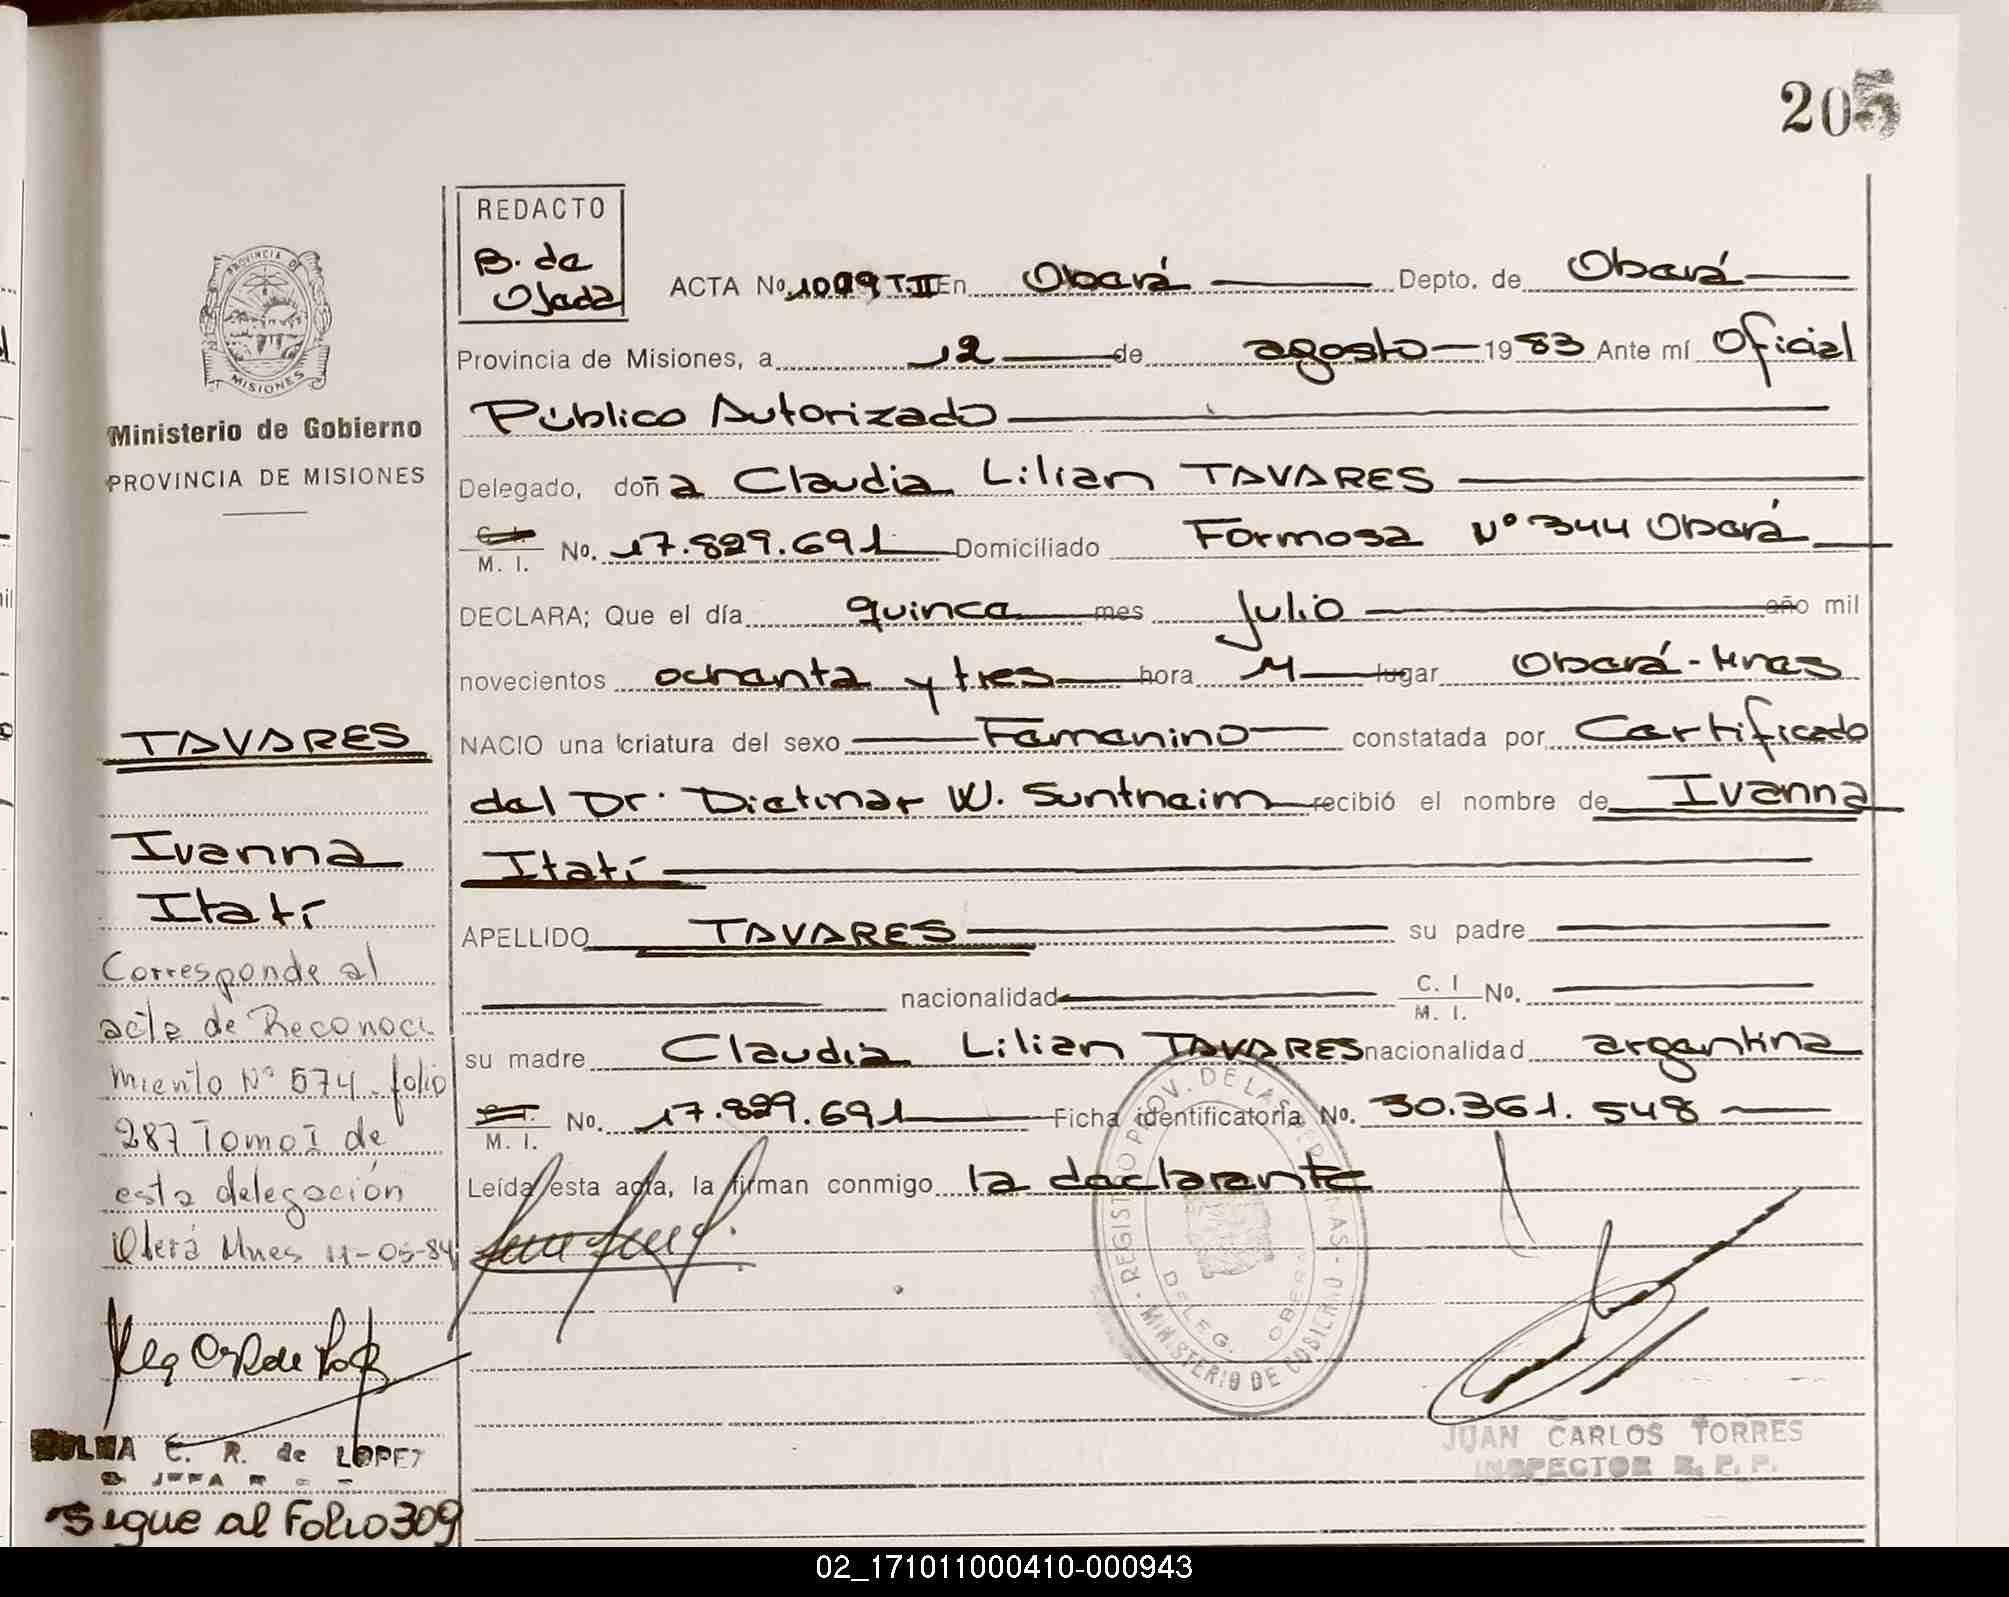 205
REDACTO
B. de
Ojeda
ACTA No. 1009 T.II En Oberá Depto. de Oberá
Provincia de Misiones, a 12 de agosto 1983 Ante mí Oficial
Público Autorizado
Delegado, doña Claudia Lilian TAVARES
C. I.
M. I. No. 17.829.691 Domiciliado Formosa Nº 344 Oberá
DECLARA; Que el día quince mes julio año mil
novecientos ochenta y tres hora 11 lugar Oberá-Mnes
NACIO una criatura del sexo Femenino constatada por Certificado
del Dr. Dietmar W. Suntheim recibió el nombre de Ivanna
Itatí
APELLIDO TAVARES su padre
nacionalidad C. I
M. I. No.
su madre Claudia Lilian TAVARES nacionalidad argentina
C. I.
M. I. No. 17.829.691 Ficha identificatoria No. 30.361.548
Leída esta acta, la firman conmigo la declarante
REGISTRO PROV. DE LAS PERSONAS
DELEG. OBERA
MINISTERIO DE GOBIERNO
JUAN CARLOS TORRES
INSPECTOR R. P. P.
PROVINCIA DE
MISIONES
Ministerio de Gobierno
PROVINCIA DE MISIONES
TAVARES
Ivanna
Itatí
Corresponde al
acta de Reconoci
miento Nº 574 folio
287 Tomo I de
esta delegación
Oberá Mnes 11-05-84
E. R. de LOPEZ
Sigue al Folio 309
02_171011000410-000943